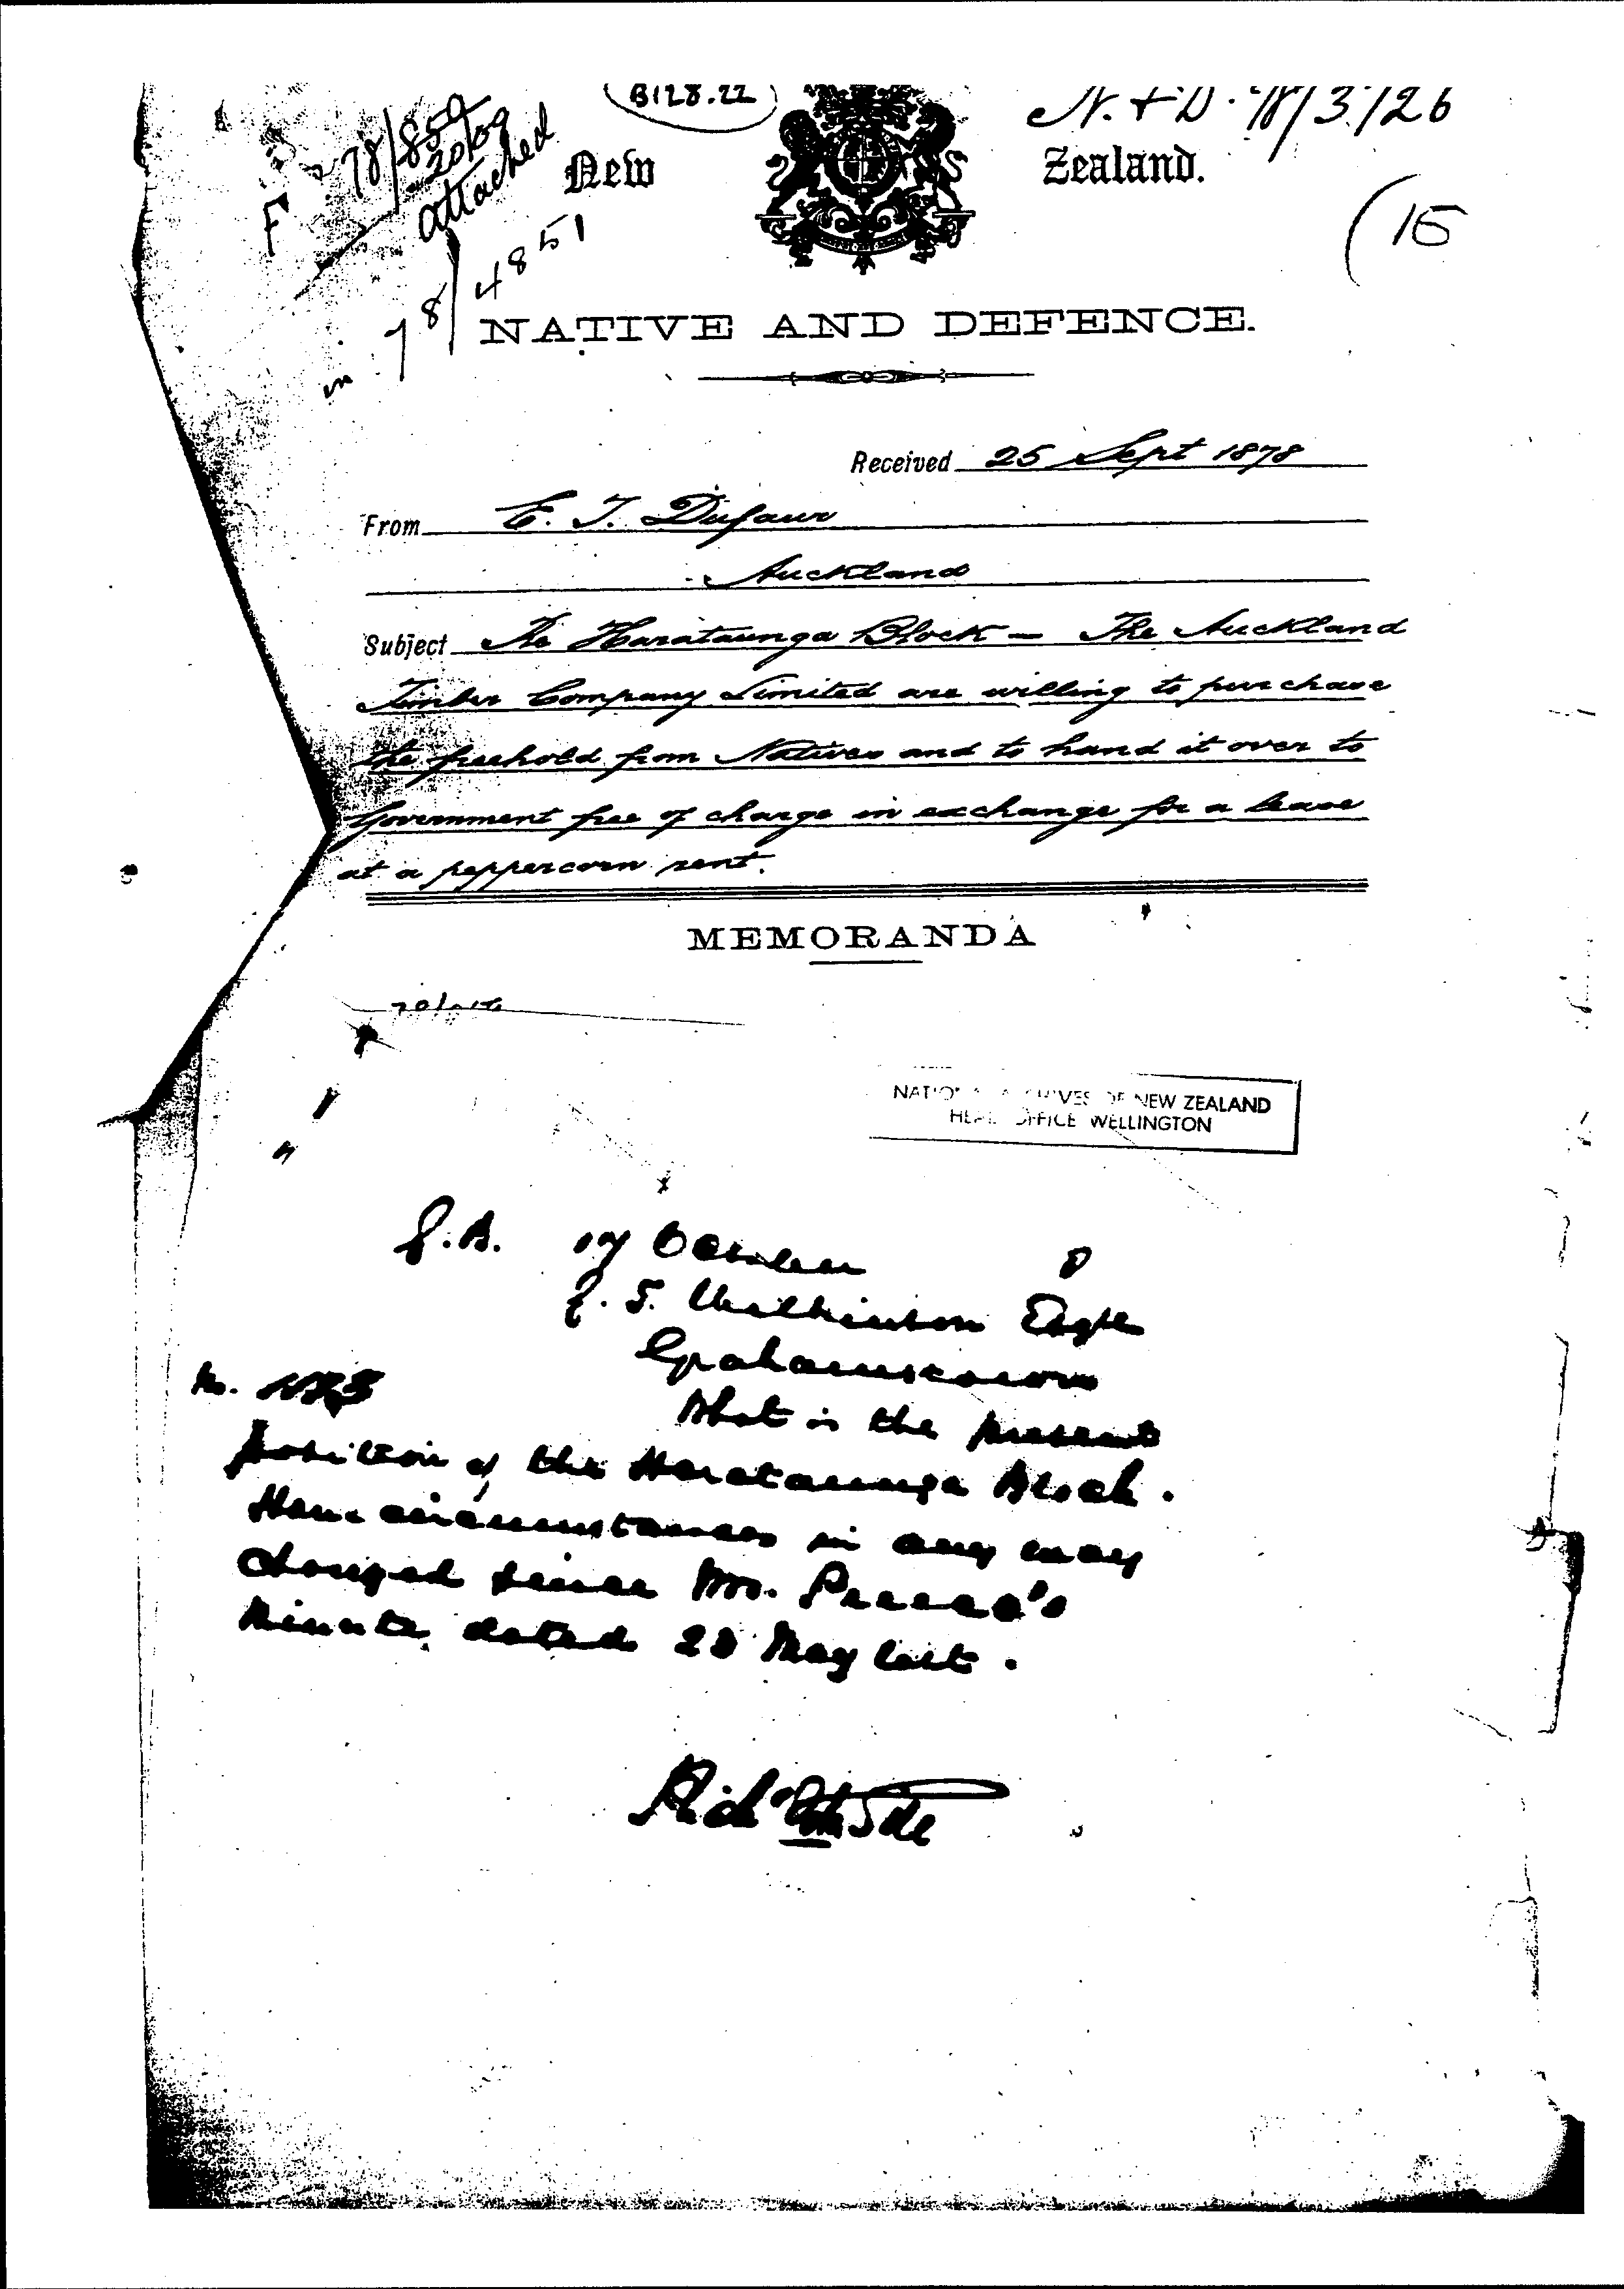 B128.22
N. & D. 78/3126
F 78/859
attached
New Zealand.
(15
in 78/4851
NATIVE AND DEFENCE.
Received 25 Sept 1878
From E. T. Dufaur
Auckland
Subject The Harataunga Block — The Auckland
Timber Company Limited are willing to purchase
the freehold from Natives and to hand it over to
Government free of charge in exchange for a lease
at a peppercorn rent.
MEMORANDA
NEW ZEALAND
OFFICE WELLINGTON
17 October 8
Wilkinson Esqre
Grahamstown
No.
What is the present
position of the Harataunga Block.
Have circumstances in any way
changed since Mr. Preece's
Minute, dated 28 May last.